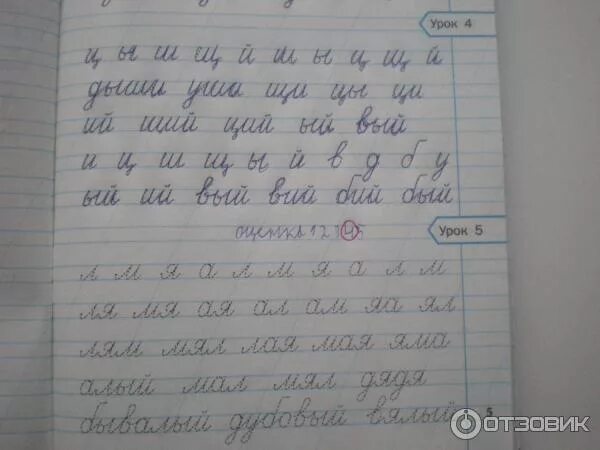 Урок 4
ц ы ш щ й ш ы ц щ й
дыши уша щи цы ци
ий ший щий ый вый
и ц ш щ ы й в д б у
ый ий вый вий бий бый
оценка 1 2 3 4 5
Урок 5
л м я а л м я а л м
ля мя ая ал ам яа ял
лям мял лая мая яма
алый мал мял дядя
бывалый дубовый вялый
5
ОТЗОВИК